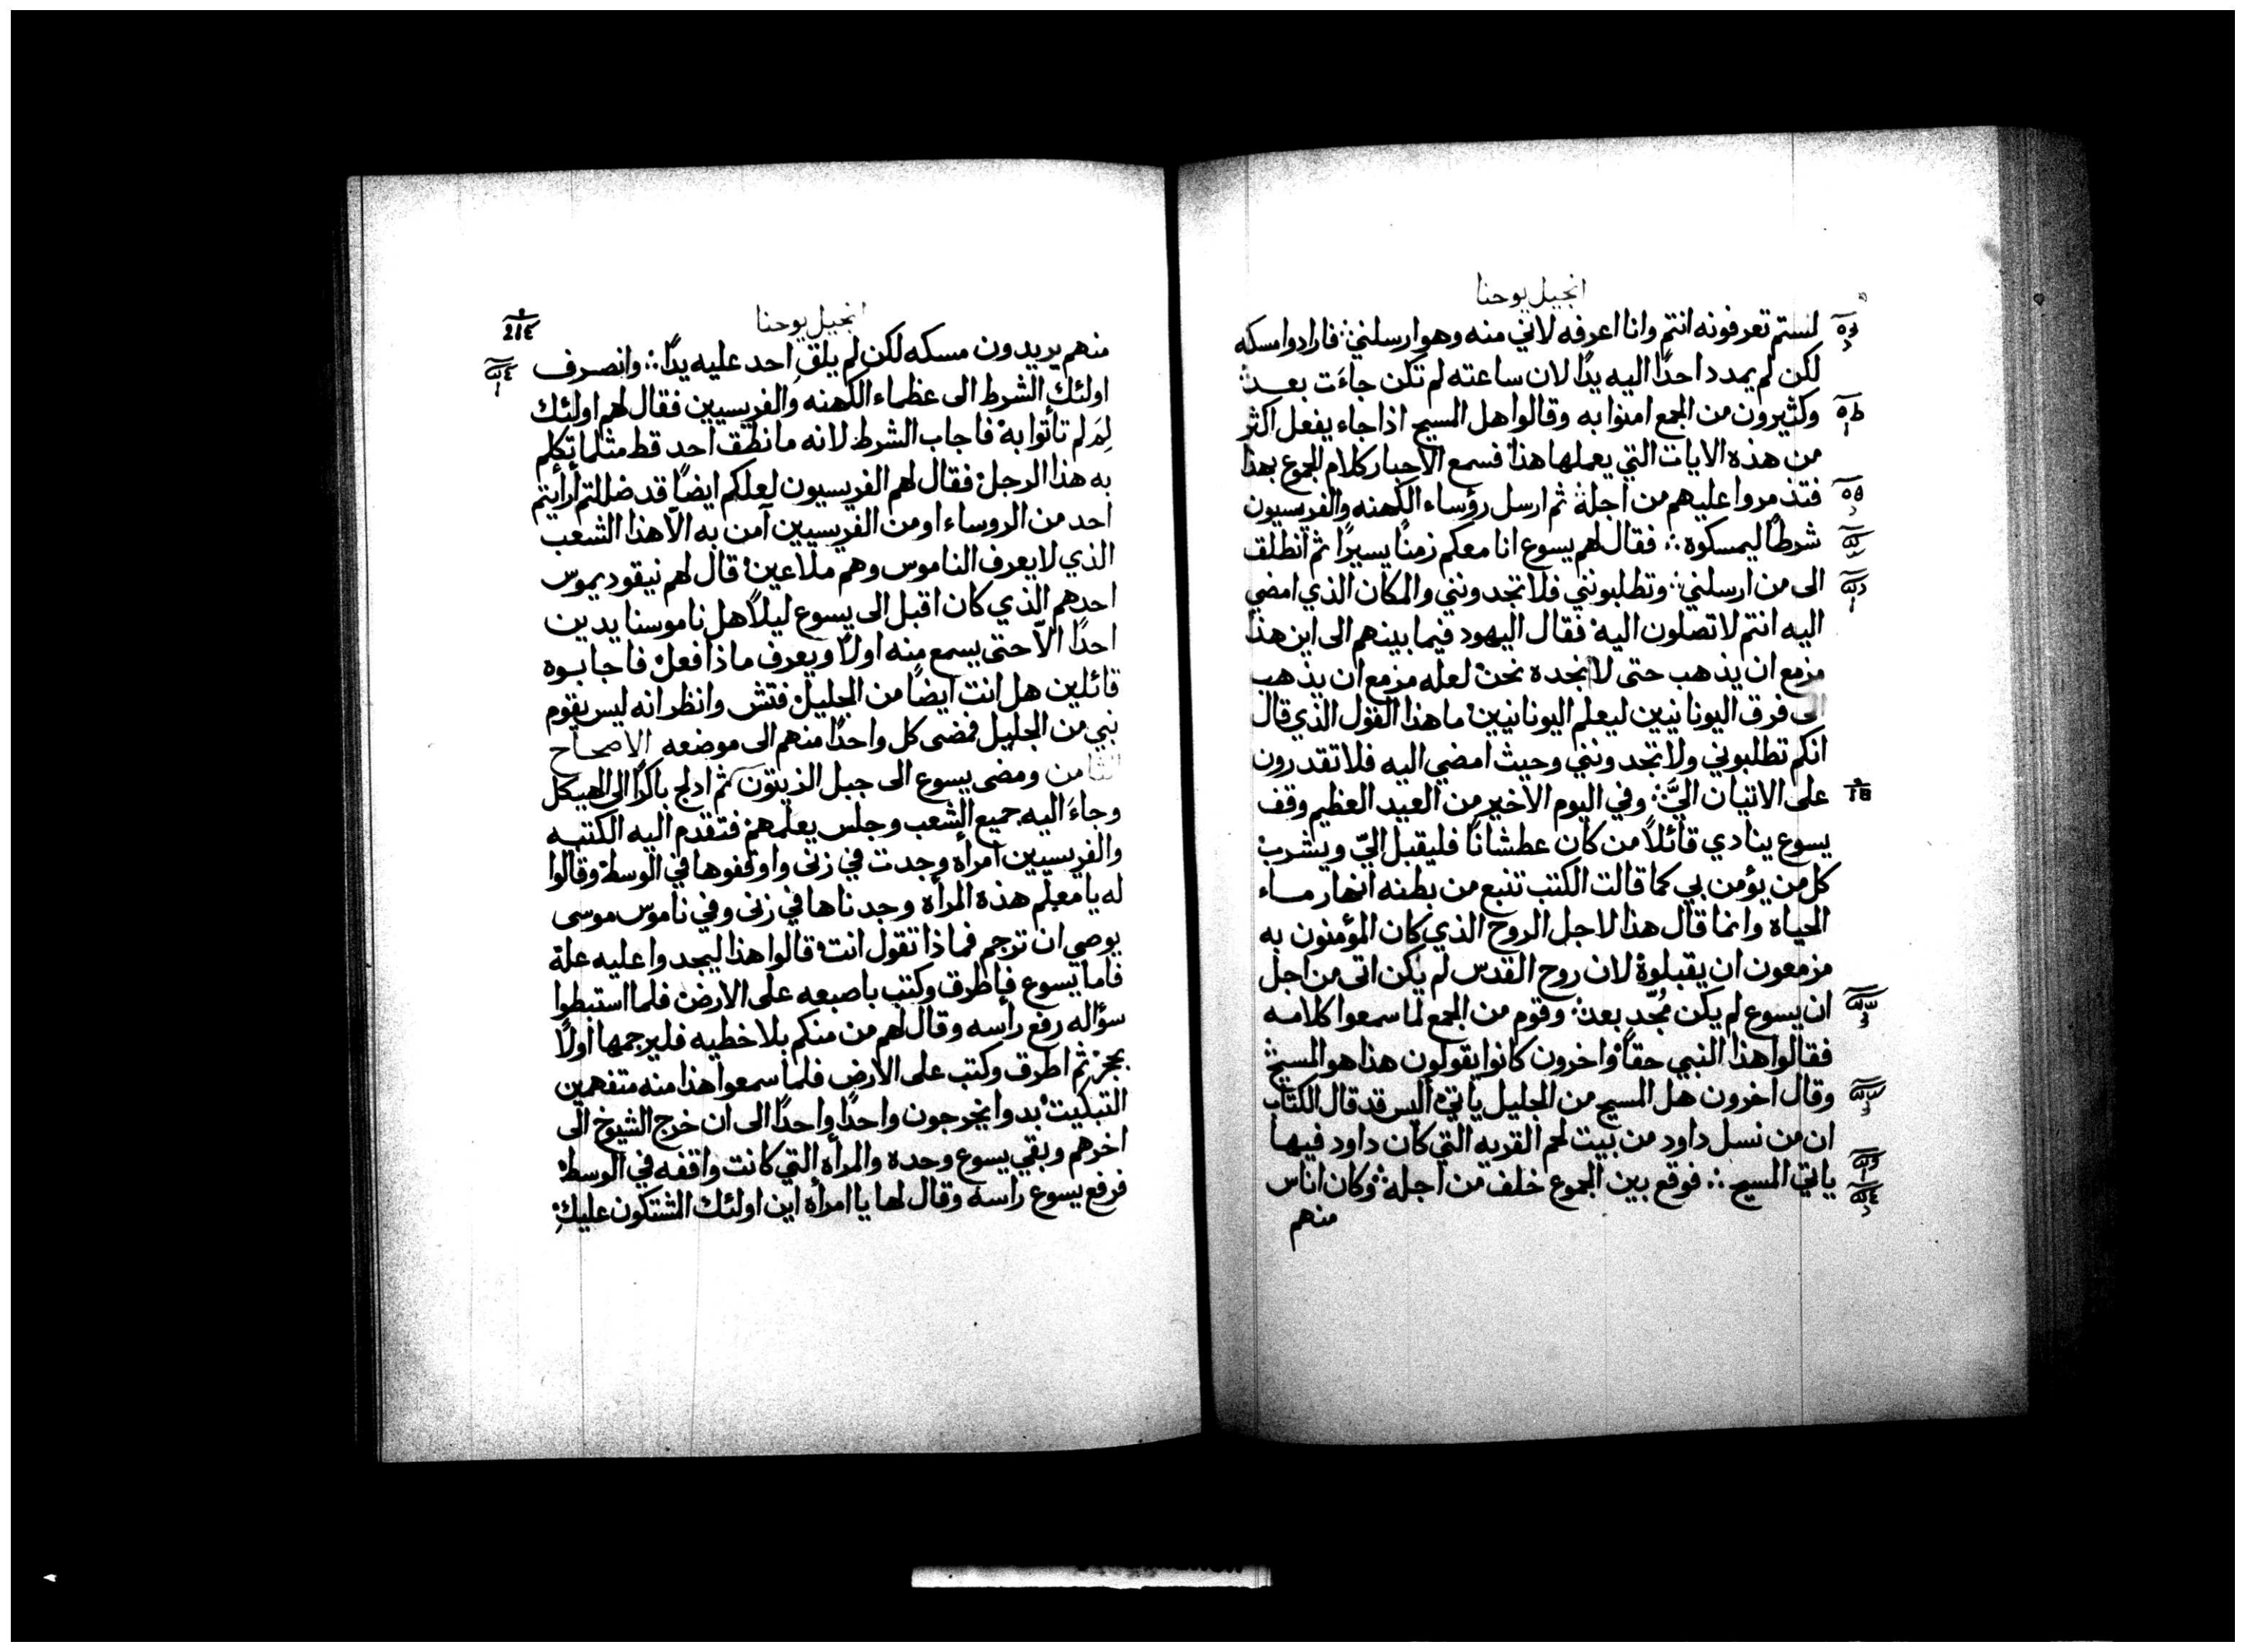 انجيل يوحنا
لستم تعرفونه انتم وانا اعرفه لاني منه وهو ارسلني فارادوا مسكه
لكن لم يمدد احدًا اليه يدًا لان ساعته لم تكن جاءت بعد
وكثيرون من الجمع امنوا به وقالوا هل المسيح اذا جاء يفعل اكثر
من هذه الايات التي يعملها هذا فسمع الاحبار كلام الجموع بهذا
فتذمروا عليهم من اجله ثم ارسل رؤساء الكهنه والفريسيون
شرطًا ليمسكوه ∴ فقال لهم يسوع انا معكم زمنًا يسيرًا ثم انطلق
الى من ارسلني وتطلبونني فلا تجدونني والمكان الذي امضي
اليه انتم لا تصلون اليه فقال اليهود فيما بينهم الى اين هذا
مزمع ان يذهب حتى لا نجده نحن لعله مزمع ان يذهب
الى فرق اليونانيين ليعلم اليونانيين ما هذا القول الذي قال
انكم تطلبوني ولا تجدونني وحيث امضي اليه فلا تقدرون
على الاتيان اليَّ وفي اليوم الاخير من العيد العظيم وقف
يسوع ينادي قائلًا من كان عطشانًا فليقبل اليّ ويشرب
كل من يؤمن بي كما قالت الكتب تنبع من بطنه انهار ماء
الحياه وانما قال هذا لاجل الروح الذي كان المؤمنون به
مزمعون ان يقبلوه لان روح القدس لم يكن اتى من اجل
ان يسوع لم يكن مُجّد بعد وقوم من الجمع لما سمعوا كلامه
فقالوا هذا النبي حقًا واخرون كانوا يقولون هذا هو المسيح
وقال اخرون هل المسيح من الجليل ياتي اليس قد قال الكتاب
ان من نسل داود من بيت لحم القريه التي كان داود فيها
ياتي المسيح ∴ فوقع بين الجموع خلف من اجله وكان اناس
منهم
انجيل يوحنا
214
منهم يريدون مسكه لكن لم يلقِ احد عليه يدًا ∴ وانصرف
اولئك الشرط الى عظماء الكهنه والفريسيين فقال لهم اولئك
لِمَ لم تأتوا به فاجاب الشرط لانه ما نطق احد قط مثلما تكلم
به هذا الرجل فقال لهم الفريسيون لعلكم ايضًا قد ضللتم أرأيتم
احد من الروساء او من الفريسيين آمن به الّا هذا الشعب
الذي لا يعرف الناموس وهم ملاعين قال لهم نيقوديموس
احدهم الذي كان اقبل الى يسوع ليلًا هل ناموسنا يدين
احدًا الّا حتى يسمع منه اولًا ويعرف ماذا فعل فاجابوه
قائلين هل انت ايضًا من الجليل فتش وانظر انه ليس يقوم
نبي من الجليل فمضى كل واحدًا منهم الى موضعه الاصحاح
الثامن ومضى يسوع الى جبل الزيتون ثم ادلج باكرًا الى الهيكل
وجاءَ اليه جميع الشعب وجلس يعلمهم فتقدم اليه الكتبه
والفريسيين امرأه وجدت في زنى واوقفوها في الوسط وقالوا
له يا معلم هذه المرأه وجدناها في زنى وفي ناموس موسى
يوصي ان ترجم فماذا تقول انت قالوا هذا ليجدوا عليه علة
فاما يسوع فاطرق وكتب باصبعه على الارض فلما استبطوا
سؤاله رفع رأسه وقال لهم من منكم بلا خطيه فليرجمها اولًا
بحجر ثم اطرق وكتب على الارض فلما سمعوا هذا منه متفهمين
التبكيت بدوا يخرجون واحدًا واحدًا الى ان خرج الشيوخ الى
اخرهم وبقي يسوع وحده والمرأه التي كانت واقفه في الوسط
فرفع يسوع راسه وقال لها يا امرأه اين اولئك الشتكون عليكِ